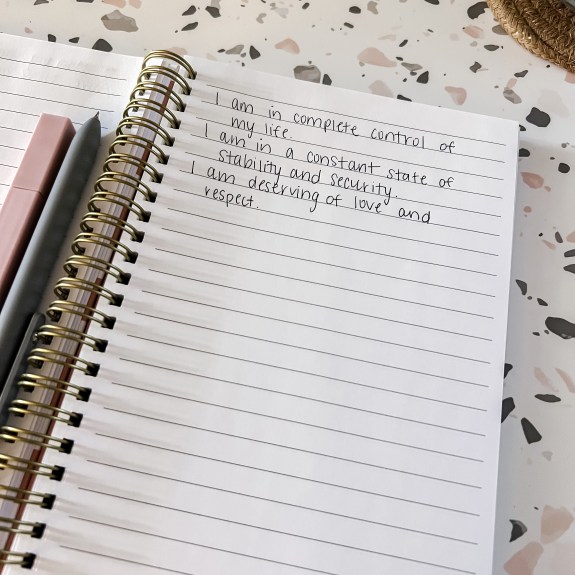 I am in complete control of
my life.
I am in a constant state of
stability and security.
I am deserving of love and
respect.